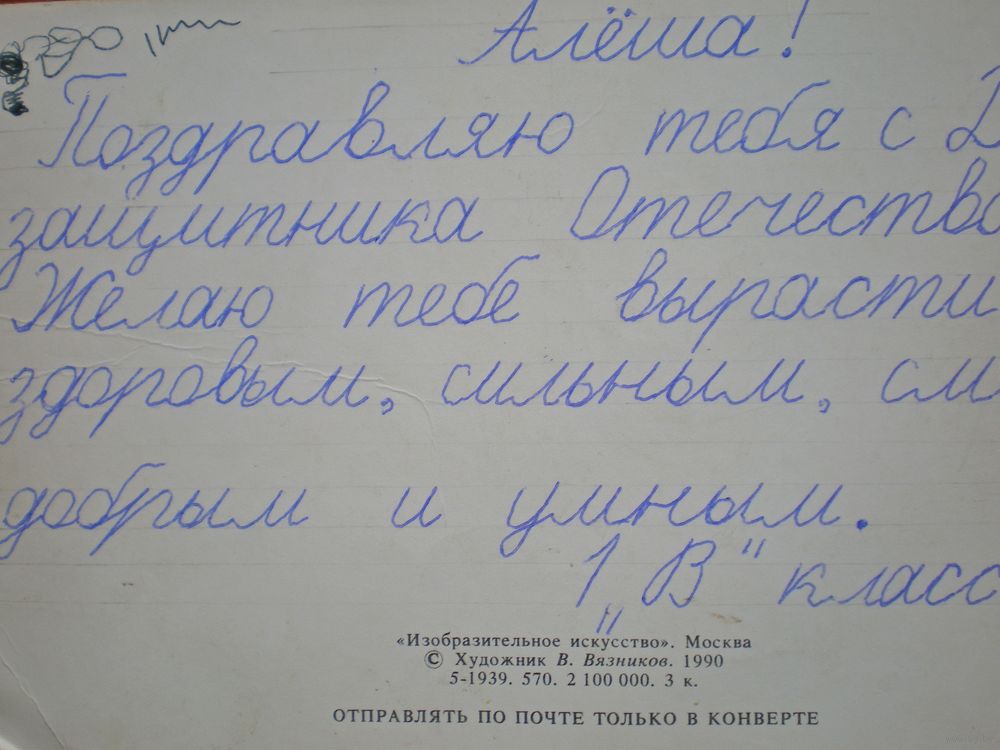 Алёша!
Поздравляю тебя с Д
защитника Отечества
Желаю тебе вырасти
здоровым, сильным, см
добрым и умным.
1 „В" класс
«Изобразительное искусство». Москва
© Художник В. Вязников. 1990
5-1939. 570. 2 100 000. 3 к.
ОТПРАВЛЯТЬ ПО ПОЧТЕ ТОЛЬКО В КОНВЕРТЕ